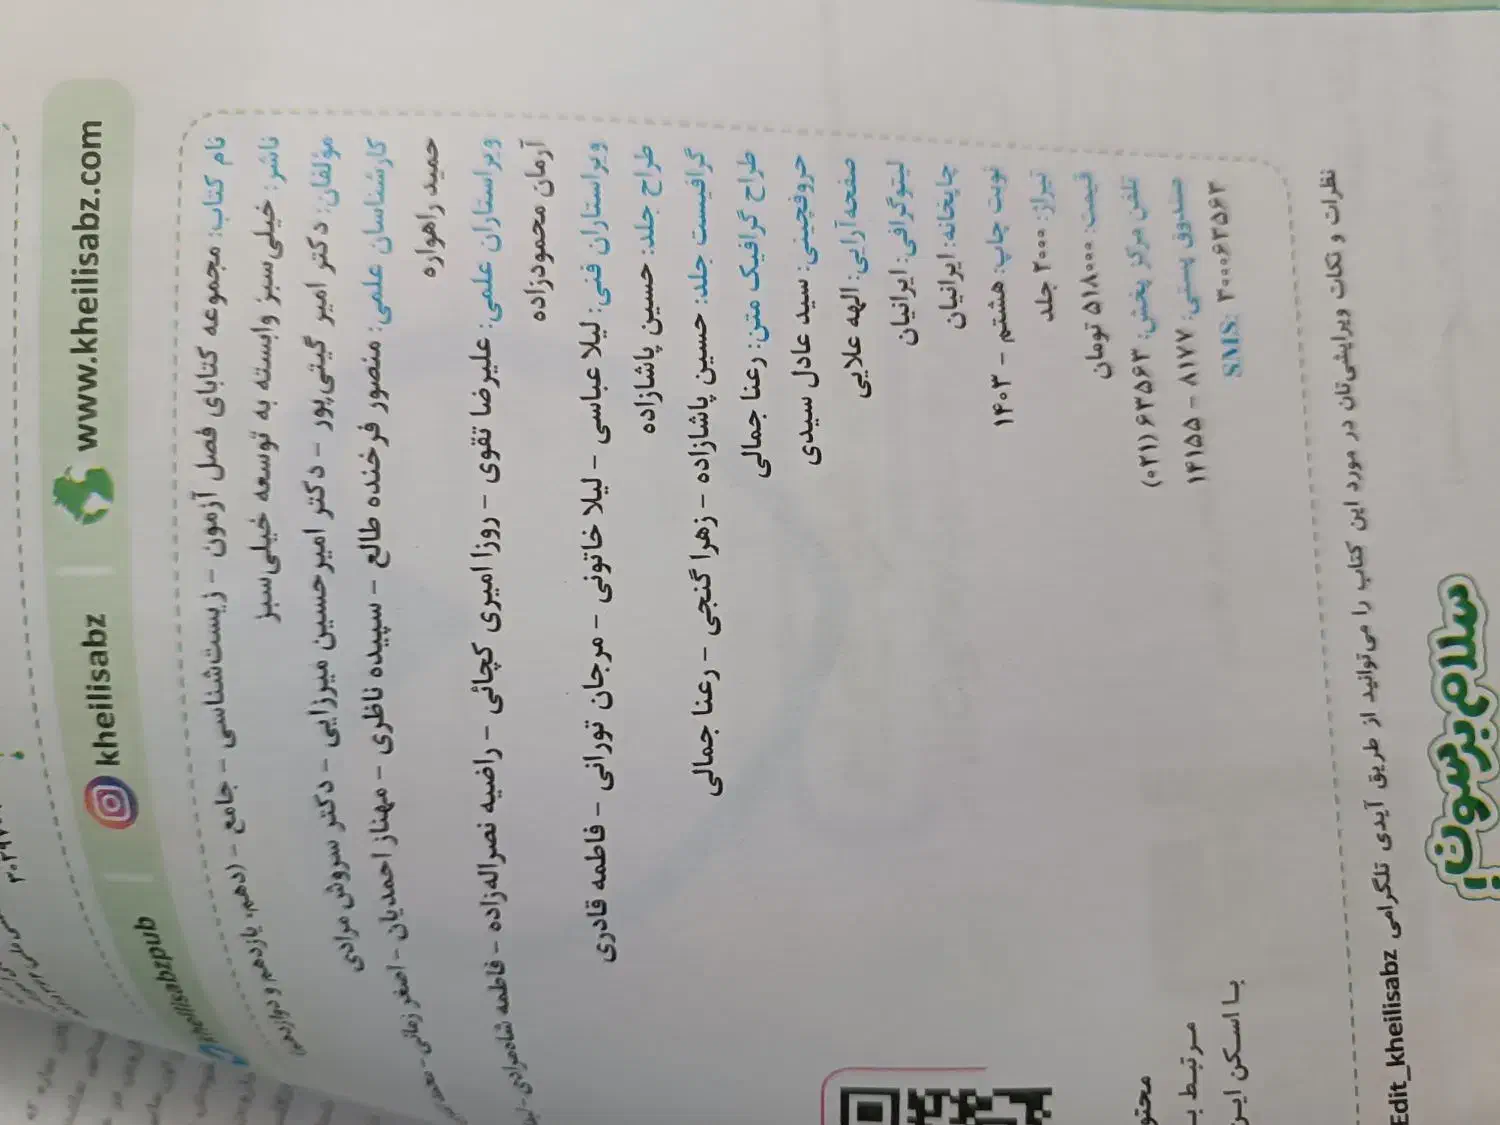 www.kheilisabz.com | kheilisabz | kheilisabzpub
نام کتاب: مجموعه کتابای فصل آزمون - زیست‌شناسی - جامع - (دهم، یازدهم و دوازدهم)
ناشر: خیلی‌سبز وابسته به توسعه خیلی‌سبز
مؤلفان: دکتر امیر گیتی‌پور - دکتر امیرحسین میرزایی - دکتر سروش مرادی
کارشناسان علمی: منصور فرخنده طالع - سپیده ناظری - مهناز احمدیان - اصغر زمانی -
حمید راهواره
ویراستاران علمی: علیرضا تقوی - روزا امیری کچائی - راضیه نصراله‌زاده - فاطمه شاه‌مرادی -
آرمان محمودزاده
ویراستاران فنی: لیلا عباسی - لیلا خاتونی - مرجان تورانی - فاطمه قادری
طراح جلد: حسین پاشازاده
گرافیست جلد: حسین پاشازاده - زهرا گنجی - رعنا جمالی
طراح گرافیک متن: رعنا جمالی
حروفچینی: سید عادل سیدی
صفحه‌آرایی: الهه علایی
لیتوگرافی: ایرانیان
چاپخانه: ایرانیان
نوبت چاپ: هشتم - ۱۴۰۳
تیراژ: ۲۰۰۰ جلد
قیمت: ۵۱۸۰۰۰ تومان
تلفن مرکز پخش: ۶۳۵۶۳(۰۲۱)
صندوق پستی: ۸۱۷۷ - ۱۴۱۵۵
SMS: ۳۰۰۰۶۳۵۶۳
نظرات و نکات ویرایشی‌تان در مورد این کتاب را می‌توانید از طریق آیدی تلگرامی Edit_kheilisabz
مرتبط
با اسکن این
سلام برسون!